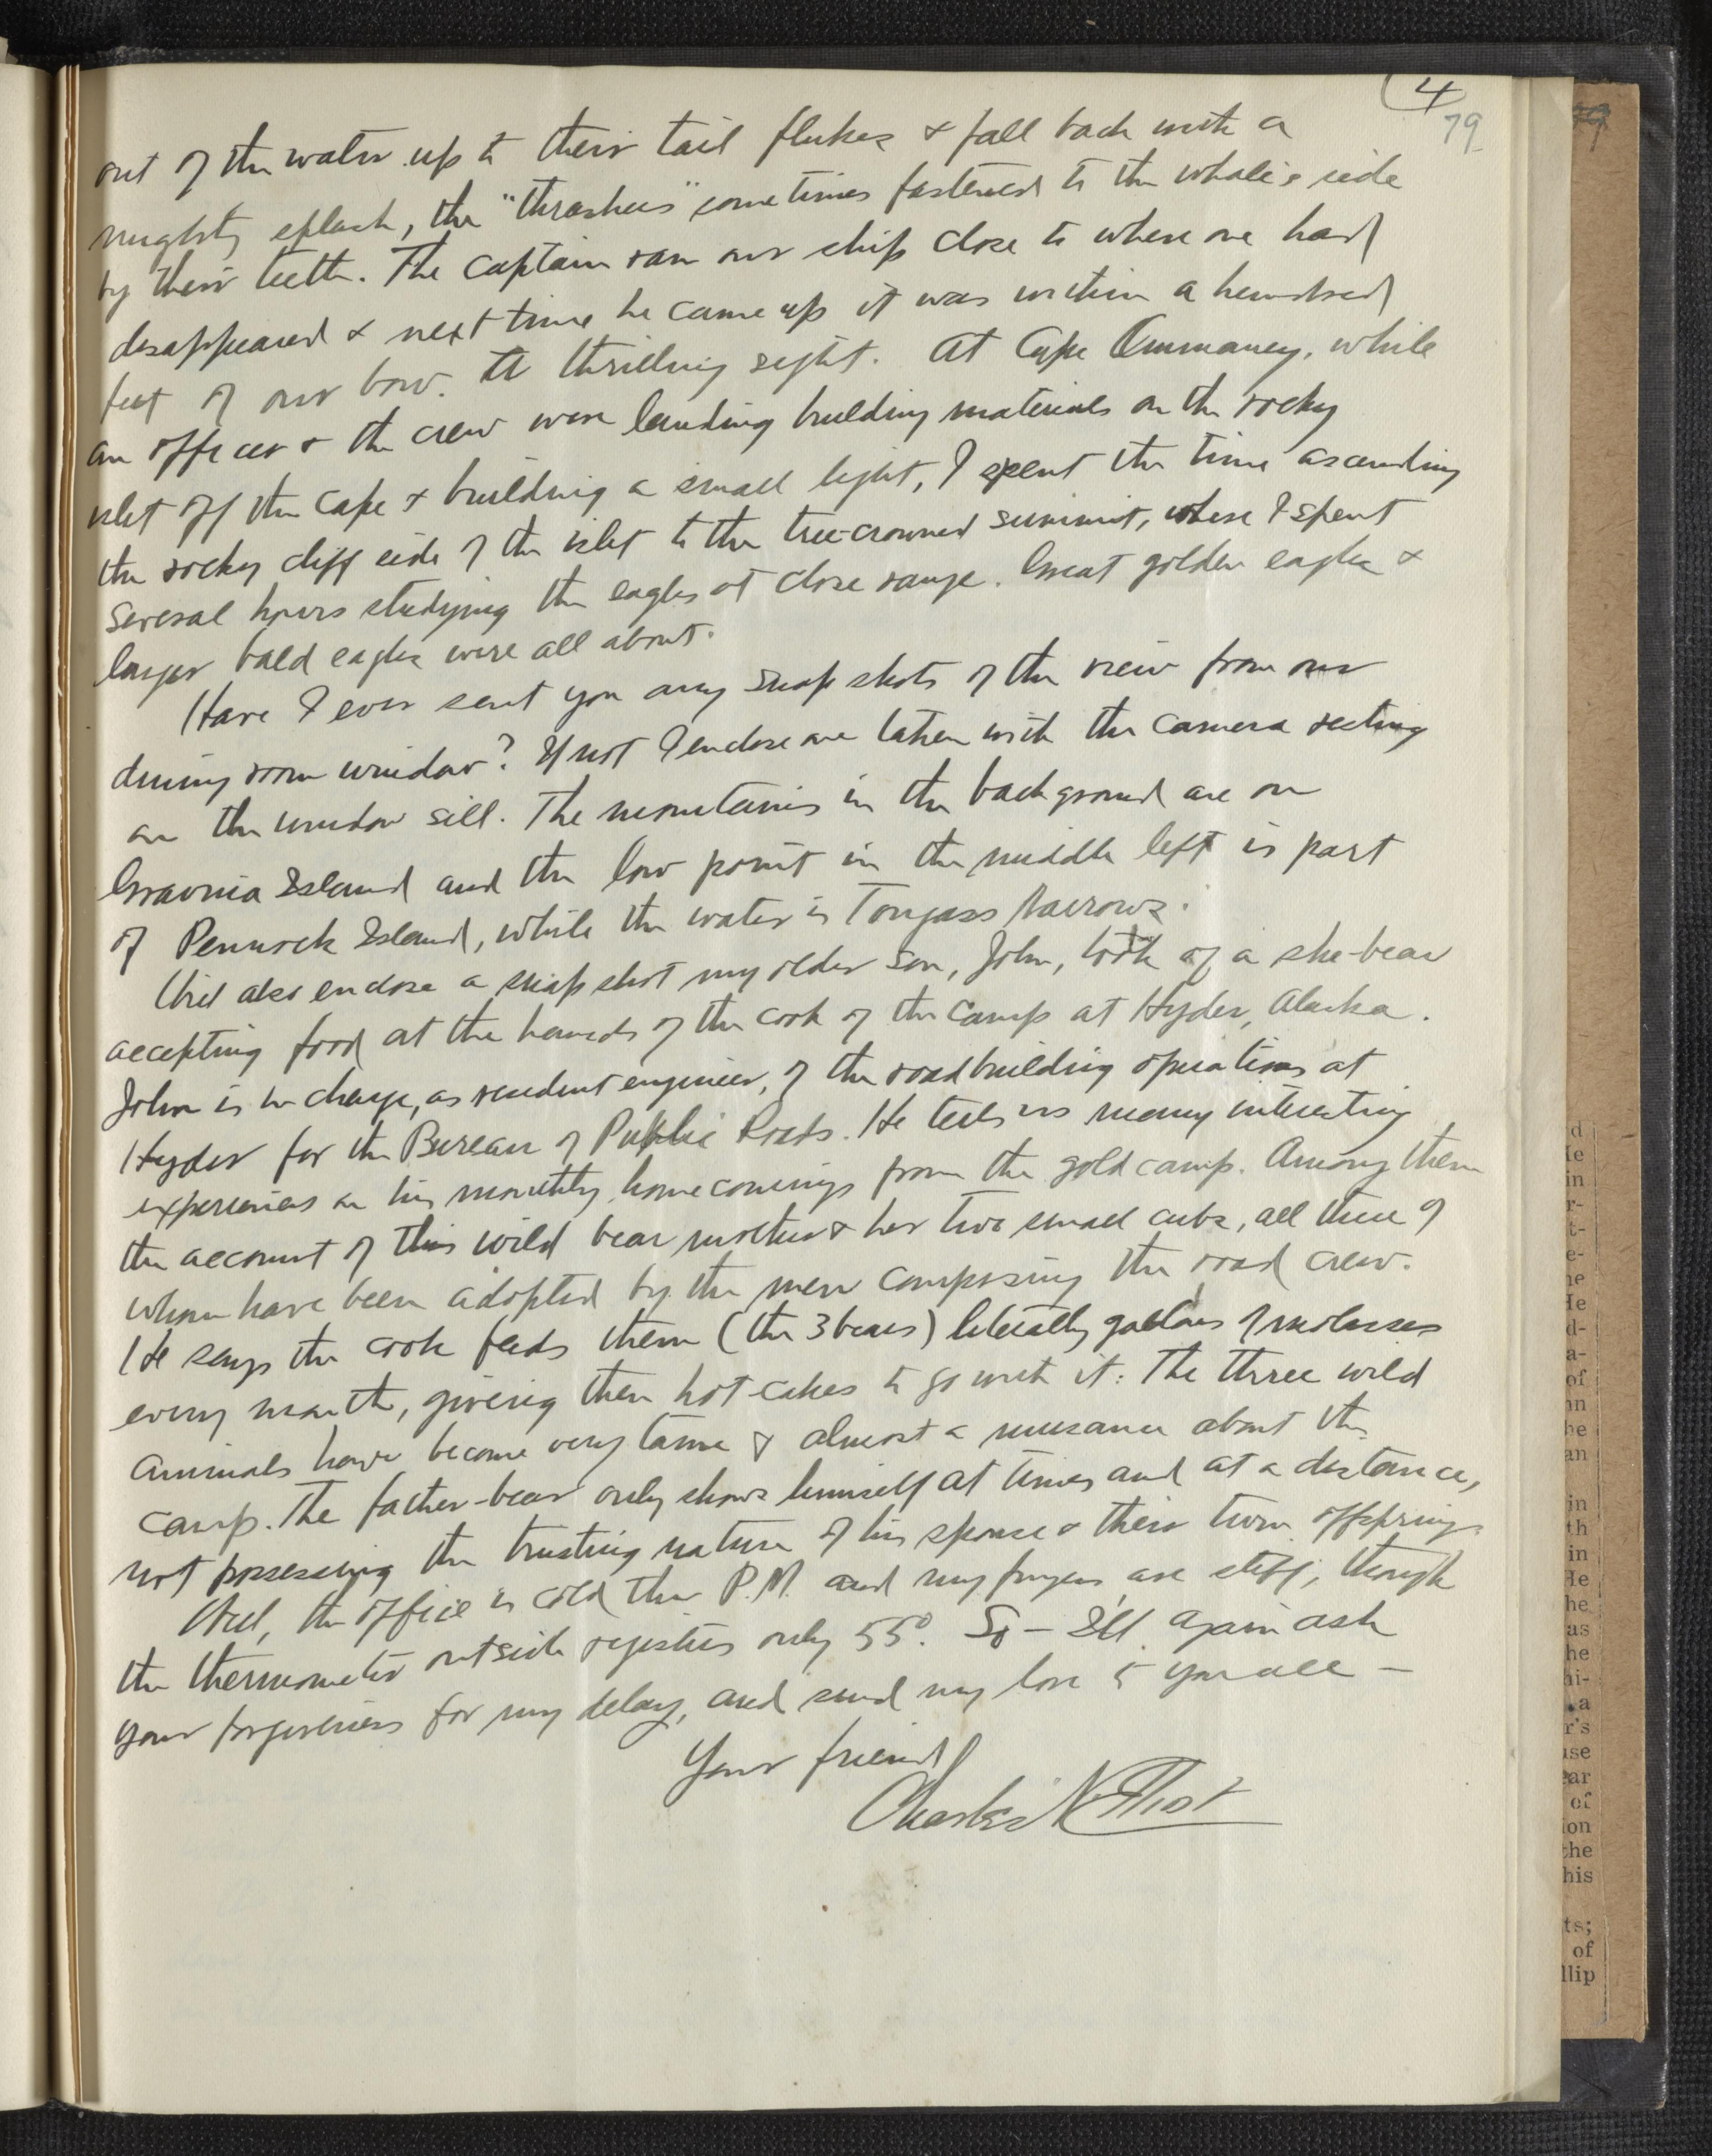 4
79
out of the water up to their tail flukes & fall back with a
mighty splash, the "thrashers" sometimes fastened to the whale's side
by their teeth. The captain ran our ship close to where one had
disappeared & next time he came up it was within a hundred
feet of our bow. A thrilling sight. At Cape Ommaney, while
an officer & the crew were landing building materials on the rocky
islet off the Cape & building a small light, I spent the time ascending
the rocky cliff side of the islet to the tree-crowned summit, where I spent
several hours studying the eagles at close range. Great golden eagles &
larger bald eagles were all about.
Have I ever sent you any snap shots of the view from our
dining room window? If not I enclose one taken with the camera resting
on the window sill. The mountains in the background are on
Gravina Island and the low point in the middle left is part
of Pennock Island, while the water is Tongass Narrows.
Will also enclose a snap shot my older son, John, took of a she-bear
accepting food at the hands of the cook of the camp at Hyder, Alaska.
John is in charge, as resident engineer, of the road building operations at
Hyder for the Bureau of Public Roads. He tells us many interesting
experiences on his monthly homecomings from the gold camp. Among them
the account of this wild bear mother & her two small cubs, all three of
whom have been adopted by the men composing the road crew.
He says the cook feeds them (the 3 bears) literally gallons of molasses
every month, giving them hot-cakes to go with it. The three wild
animals have become very tame & almost a nuisance about the
camp. The father-bear only shows himself at times and at a distance,
not possessing the trusting nature of his spouse & their twin offspring.
Well, the office is cold this P.M. and my fingers are stiff, though
the thermometer outside registers only 55°. So - I'll again ask
your forgiveness for my delay, and send my love to you all -
Your friend
Charles
d
in
r-
t-
e-
he
He
d-
a-
of
be
an
in
th
in
He
he
as
he
a
r's
ear
of
ion
the
his
ts;
of
llip